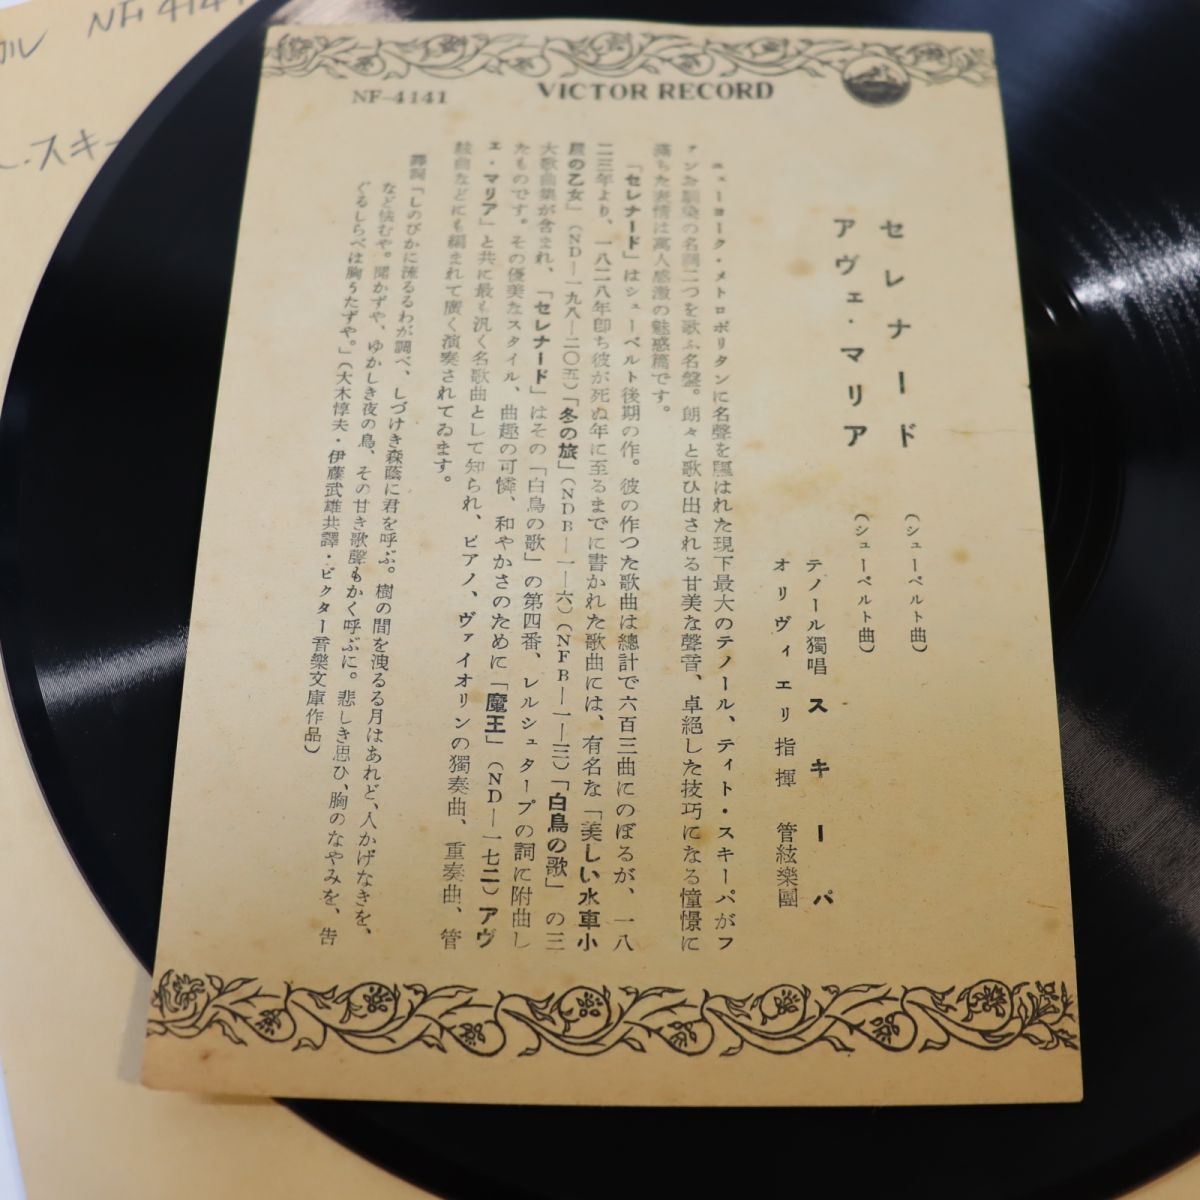 NF-4141
VICTOR RECORD
セレナード (シューベルト曲)
アヴェ・マリア (シューベルト曲)
テノール獨唱 スキーパ
オリヴィエリ指揮 管絃樂團
ニューヨーク・メトロポリタンに名聲を謳はれた現下最大のテノール、ティト・スキーパがフ
ァンお馴染の名調二つを歌ふ名盤。朗々と歌ひ出される甘美な聲音、卓絶した技巧になる憧憬に
滿ちた表情は萬人感激の魅惑篇です。
「セレナード」はシューベルト後期の作。彼の作つた歌曲は總計で六百三曲にのぼるが、一八
二三年より、一八二八年卽ち彼が死ぬ年に至るまでに書かれた歌曲には、有名な「美しい水車小
屋の乙女」(ND—一九八—二〇五)「冬の旅」(NDB—一—六)(NFB—一—三)「白鳥の歌」の三
大歌曲集が含まれ、「セレナード」はその「白鳥の歌」の第四番、レルシュタープの詞に附曲し
たものです。その優美なスタイル、曲趣の可憐、和やかさのために「魔王」(ND—一七二)アヴ
ェ・マリア」と共に最も汎く名歌曲として知られ、ピアノ、ヴァイオリンの獨奏曲、重奏曲、管
絃曲などにも編まれて廣く演奏されてゐます。
譯詞「しのびかに流るるわが調べ、しづけき森蔭に君を呼ぶ。樹の間を洩るる月はあれど、人かげなきを、
など怯むや。聞かずや、ゆかしき夜の鳥、その甘き歌聲もかく呼ぶに。悲しき思ひ、胸のなやみを、告
ぐるしらべは胸うたずや。」(大木惇夫・伊藤武雄共譯・ビクター音樂文庫作品)
ル NF4141
・スキー